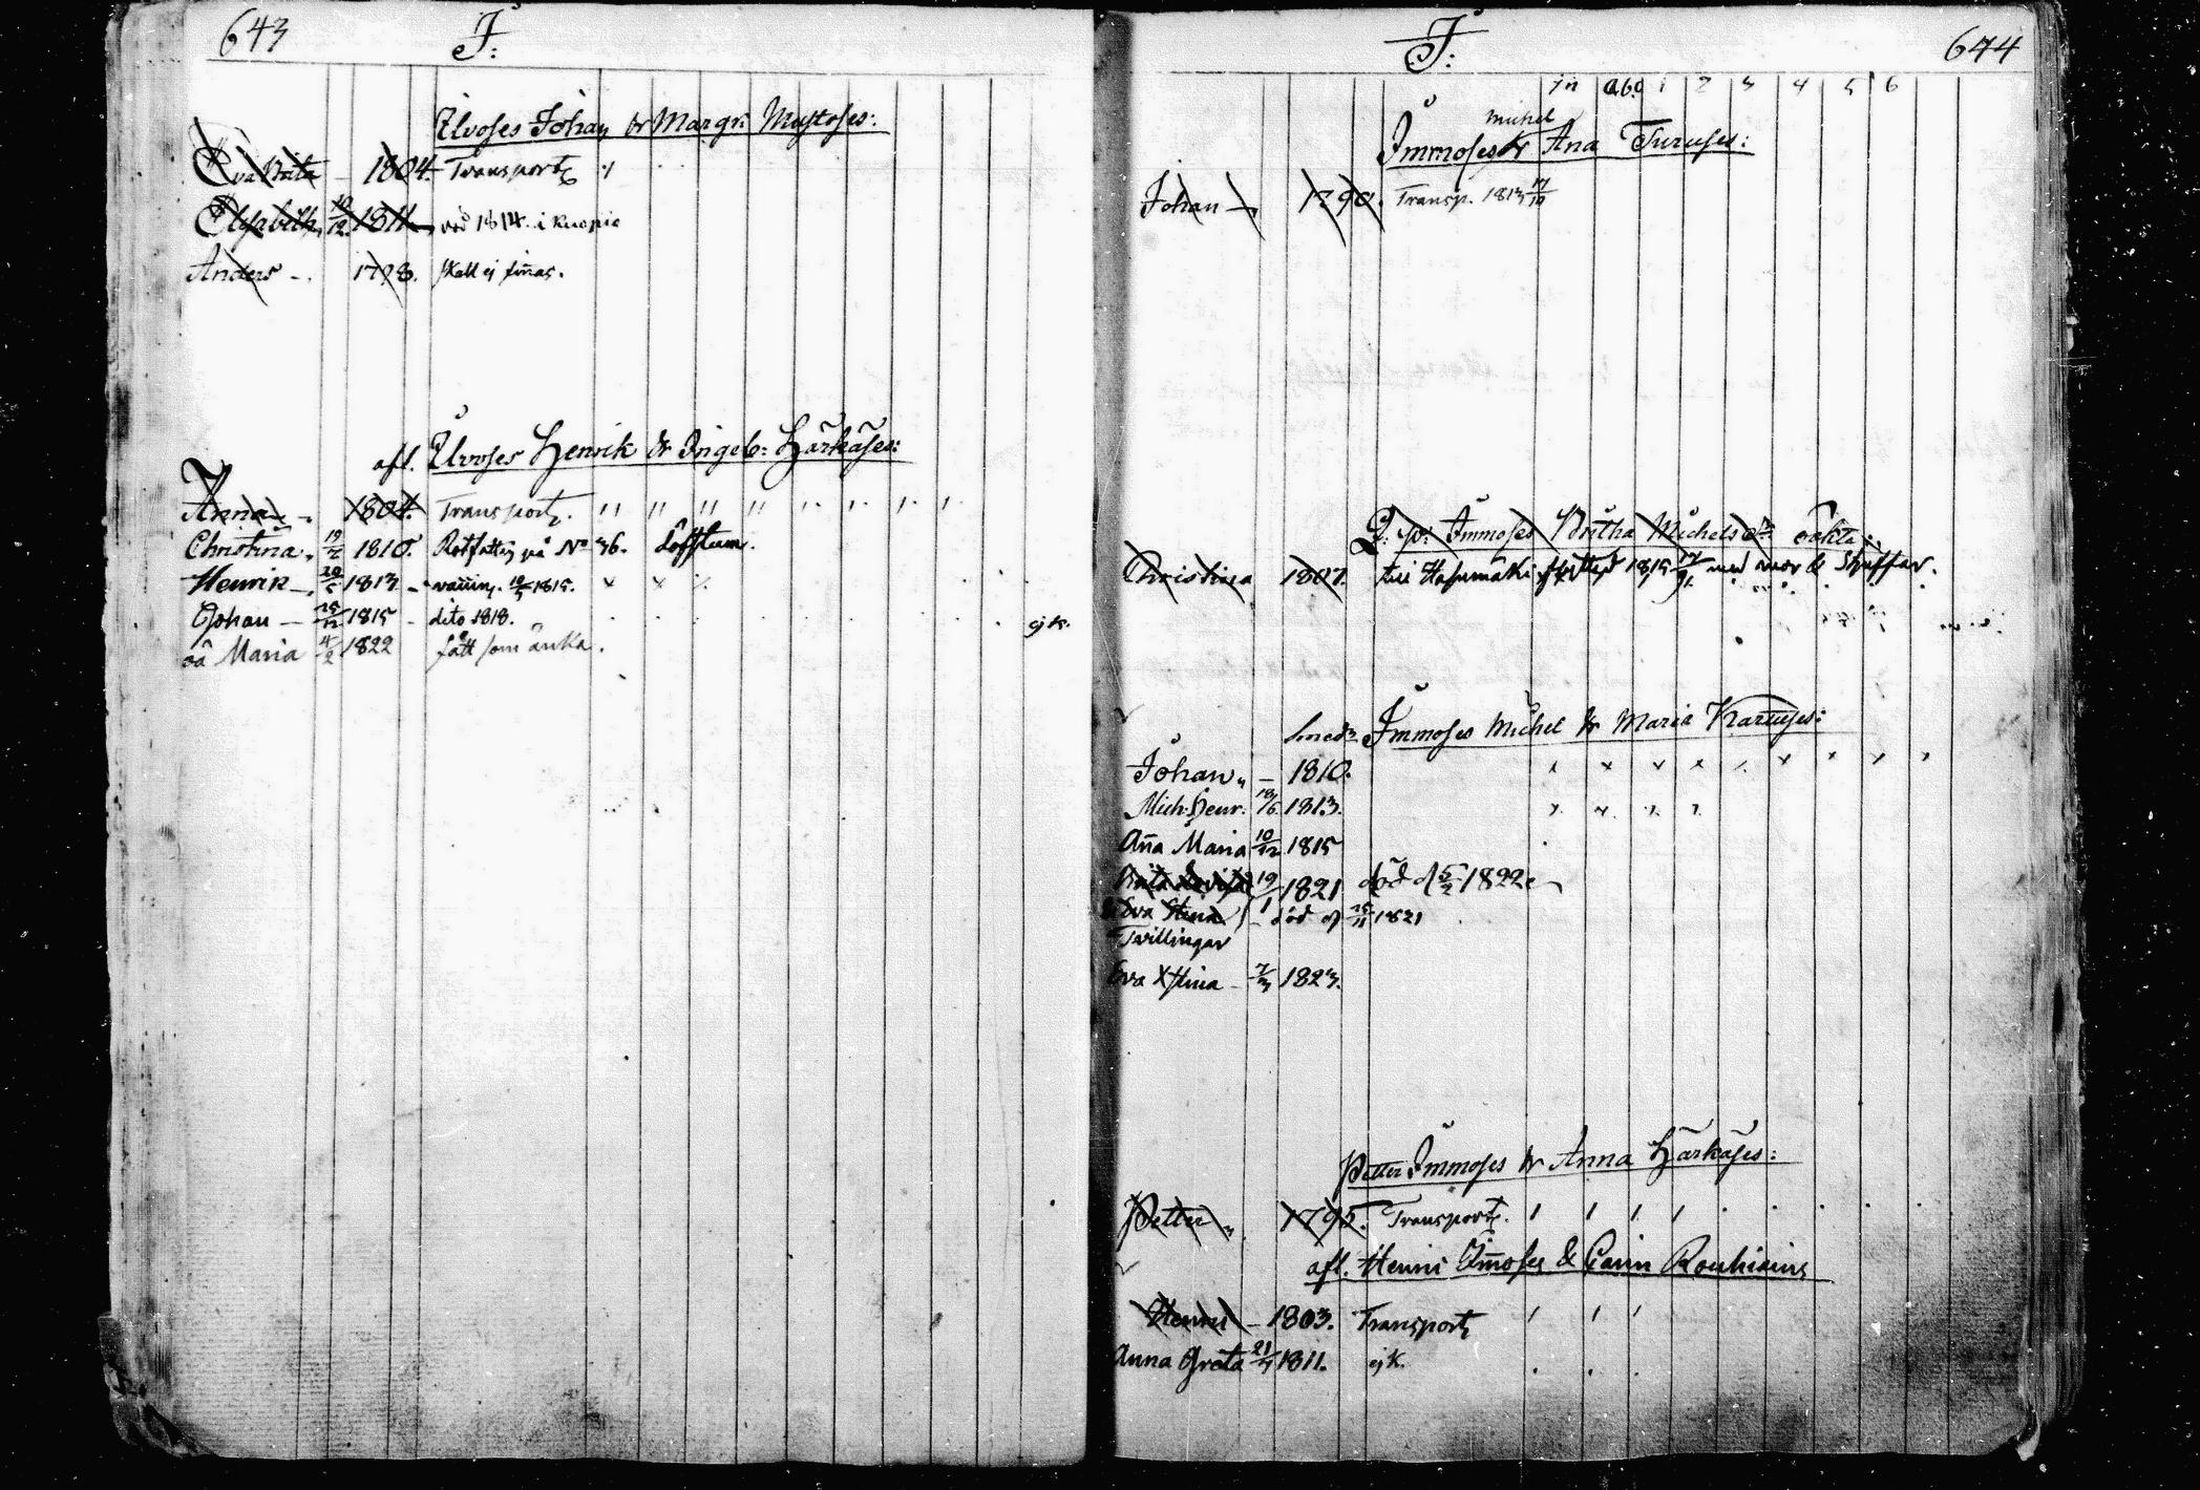 643
I:
Ilvoses Johan & Margr: Mustoses:
Eva Brita – 1804. Transport
Elisabeth, 12 1811 död 1814. i Kuopio
Anders – 1798. skall ej finnas.
afl. Ilvoses Henrik & Ingeb: Härkäses:
Anna – 1804. Transport.
Christina 19 1810. Rotfattig på No 36.
Henrik – 20/5 1813 – vaccin. 1815.
Johan – 25/12 1815 – dito 1818. ejk.
oä Maria 4/2 1822 fått som änka.
644
I:
in Abc 1 2 3 4 5 6
Michel
Immoses & Ana Turuses:
Johan – 1790. Transp. 1813 17/10
Immoses Britha Michels
Christina 1807. till flyttad 1815 med mor &
Immoses Michel & Maria Karuses:
Johan – 1810.
Mich: Henr. 18/6 1813.
Anna Maria 10/12 1815
Brita Lovisa 19 1821 död d 5/2 1822
Eva Stina 1 död d 25/11 1821
Tvillingar
Eva Xstina – 7/3 1823.
Petter Immoses & Anna Härkäses:
Petter 1795. Transport.
afl. Henric Immoses & Carin Rouhiains
Henric – 1803. Transport
Anna Greta 21/7 1811. ejk.